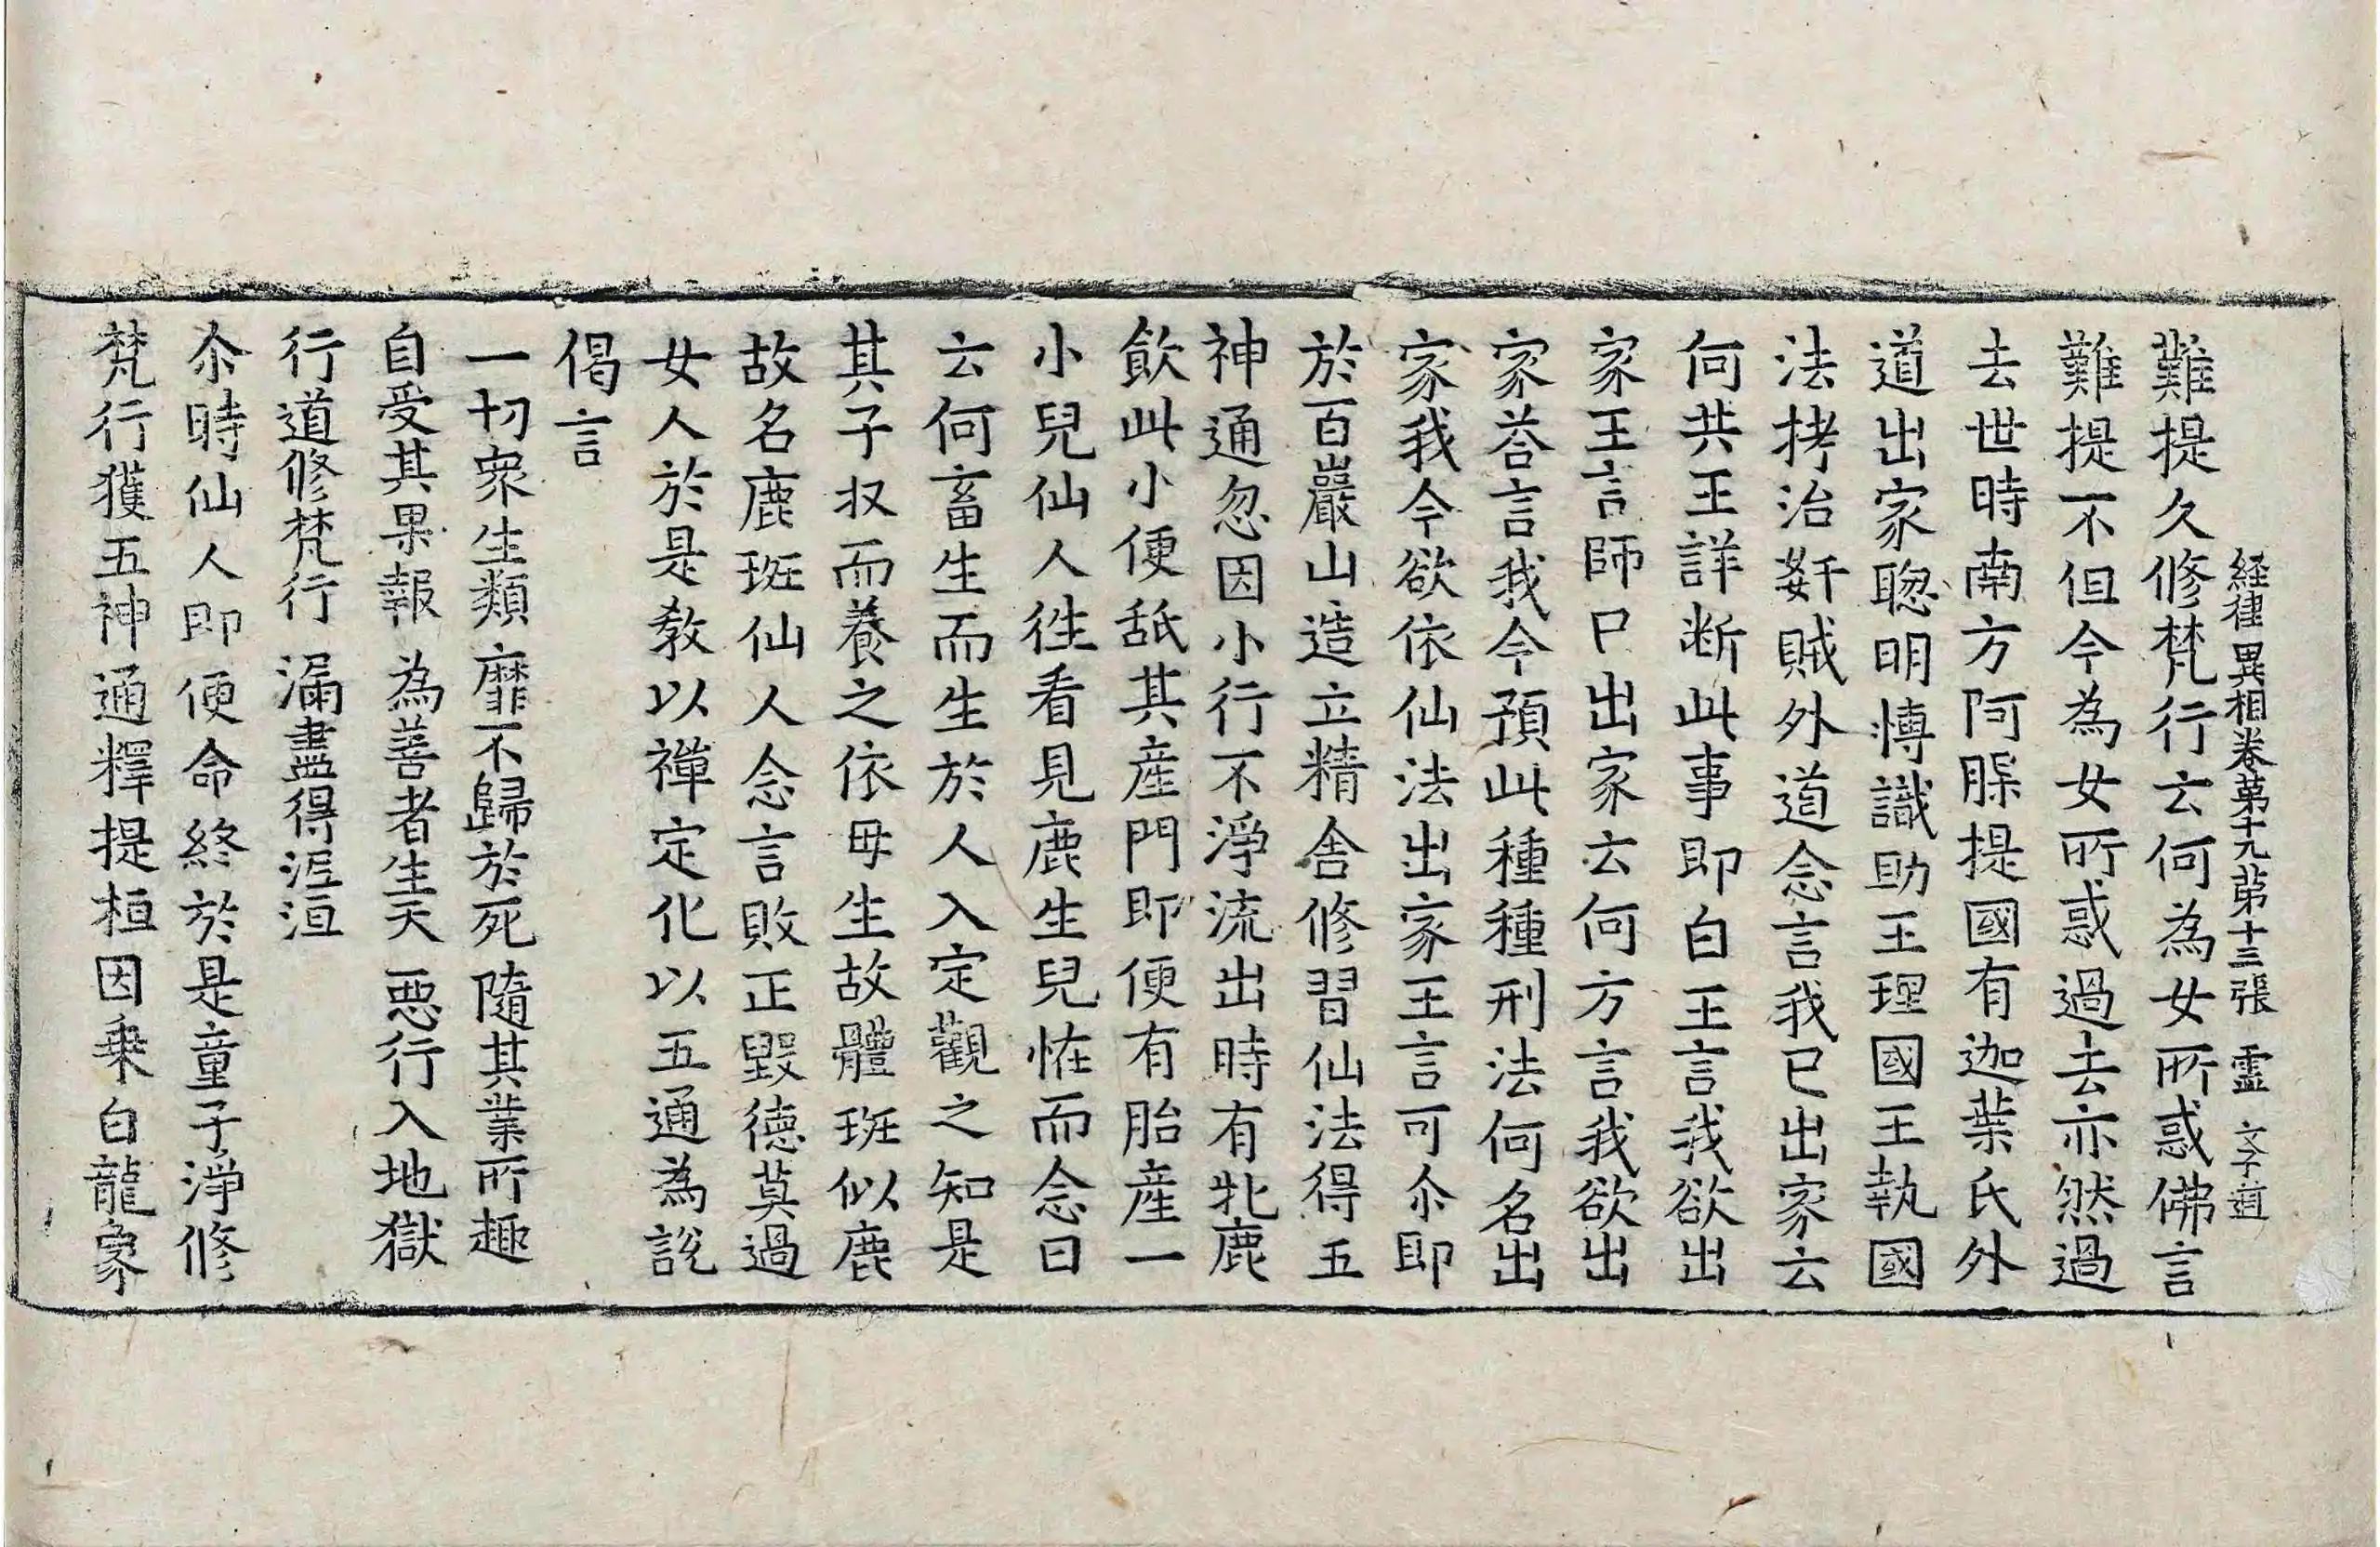 経律異相卷苐十九 苐十三張 霊 文子道
難提久修梵行云何為女所惑佛言
難提不但今為女所惑過去亦然過
去世時南方阿䐾提國有迦葉氏外
道出家聦明博識助王理國王執國
法拷治姧賊外道念言我已出家云
何共王詳断此事即白王言我欲出
家王言師已出家云何方言我欲出
家荅言我今預此種種刑法何名出
家我今欲依仙法出家王言可尒即
於百巖山造立精舍修習仙法得五
神通忽因小行不淨流出時有牝鹿
飲此小便舐其産門即便有胎産一
小兒仙人徃看見鹿生兒恠而念曰
云何畜生而生於人入定觀之知是
其子収而養之依母生故體班似鹿
故名鹿班仙人念言敗正毀德莫過
女人於是教以禪定化以五通為說
偈言
一切衆生類 靡不歸於死 隨其業所趣
自受其果報 為善者生天 惡行入地獄
行道修梵行 漏盡得泥洹
尒時仙人即便命終於是童子淨修
梵行獲五神通釋提桓因乗白龍象